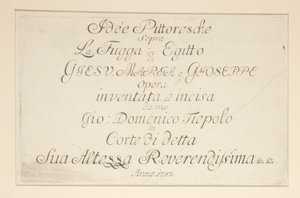 Idée Pittoresche
Sopra
La Fugga in Egitto
di
GIESV, MARIA e GIOSEPPE
Opera
inventata, e incisa
da me
Gio: Domenico Tiepolo
in
Corte di detta
Sua Altezza Reverendissima &. &.
Anno